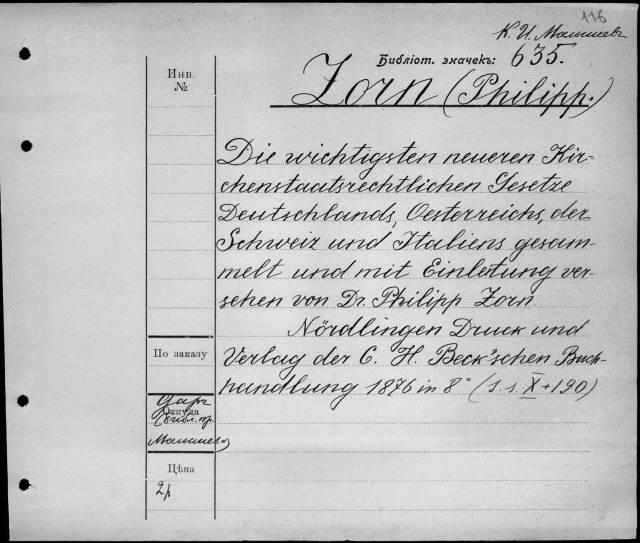 116
К. И. Малышевъ
Библіот. значекъ: 635.
Инв.
№
Zorn (Philipp.)
Die wichtigsten neueren Kir-
chenstaatsrechtlichen Gesetze
Deutschlands, Oesterreichs, der
Schweiz und Italiens gesam-
melt und mit Einleitung ver-
sehen von Dr. Philipp Zorn.
Nördlingen Druck und
По заказу
Verlag der C. H. Beck'schen Buch-
handlung 1876 in 8° (S.s. X+190)
Даръ
Откуда
Малышева
Цѣна
2р